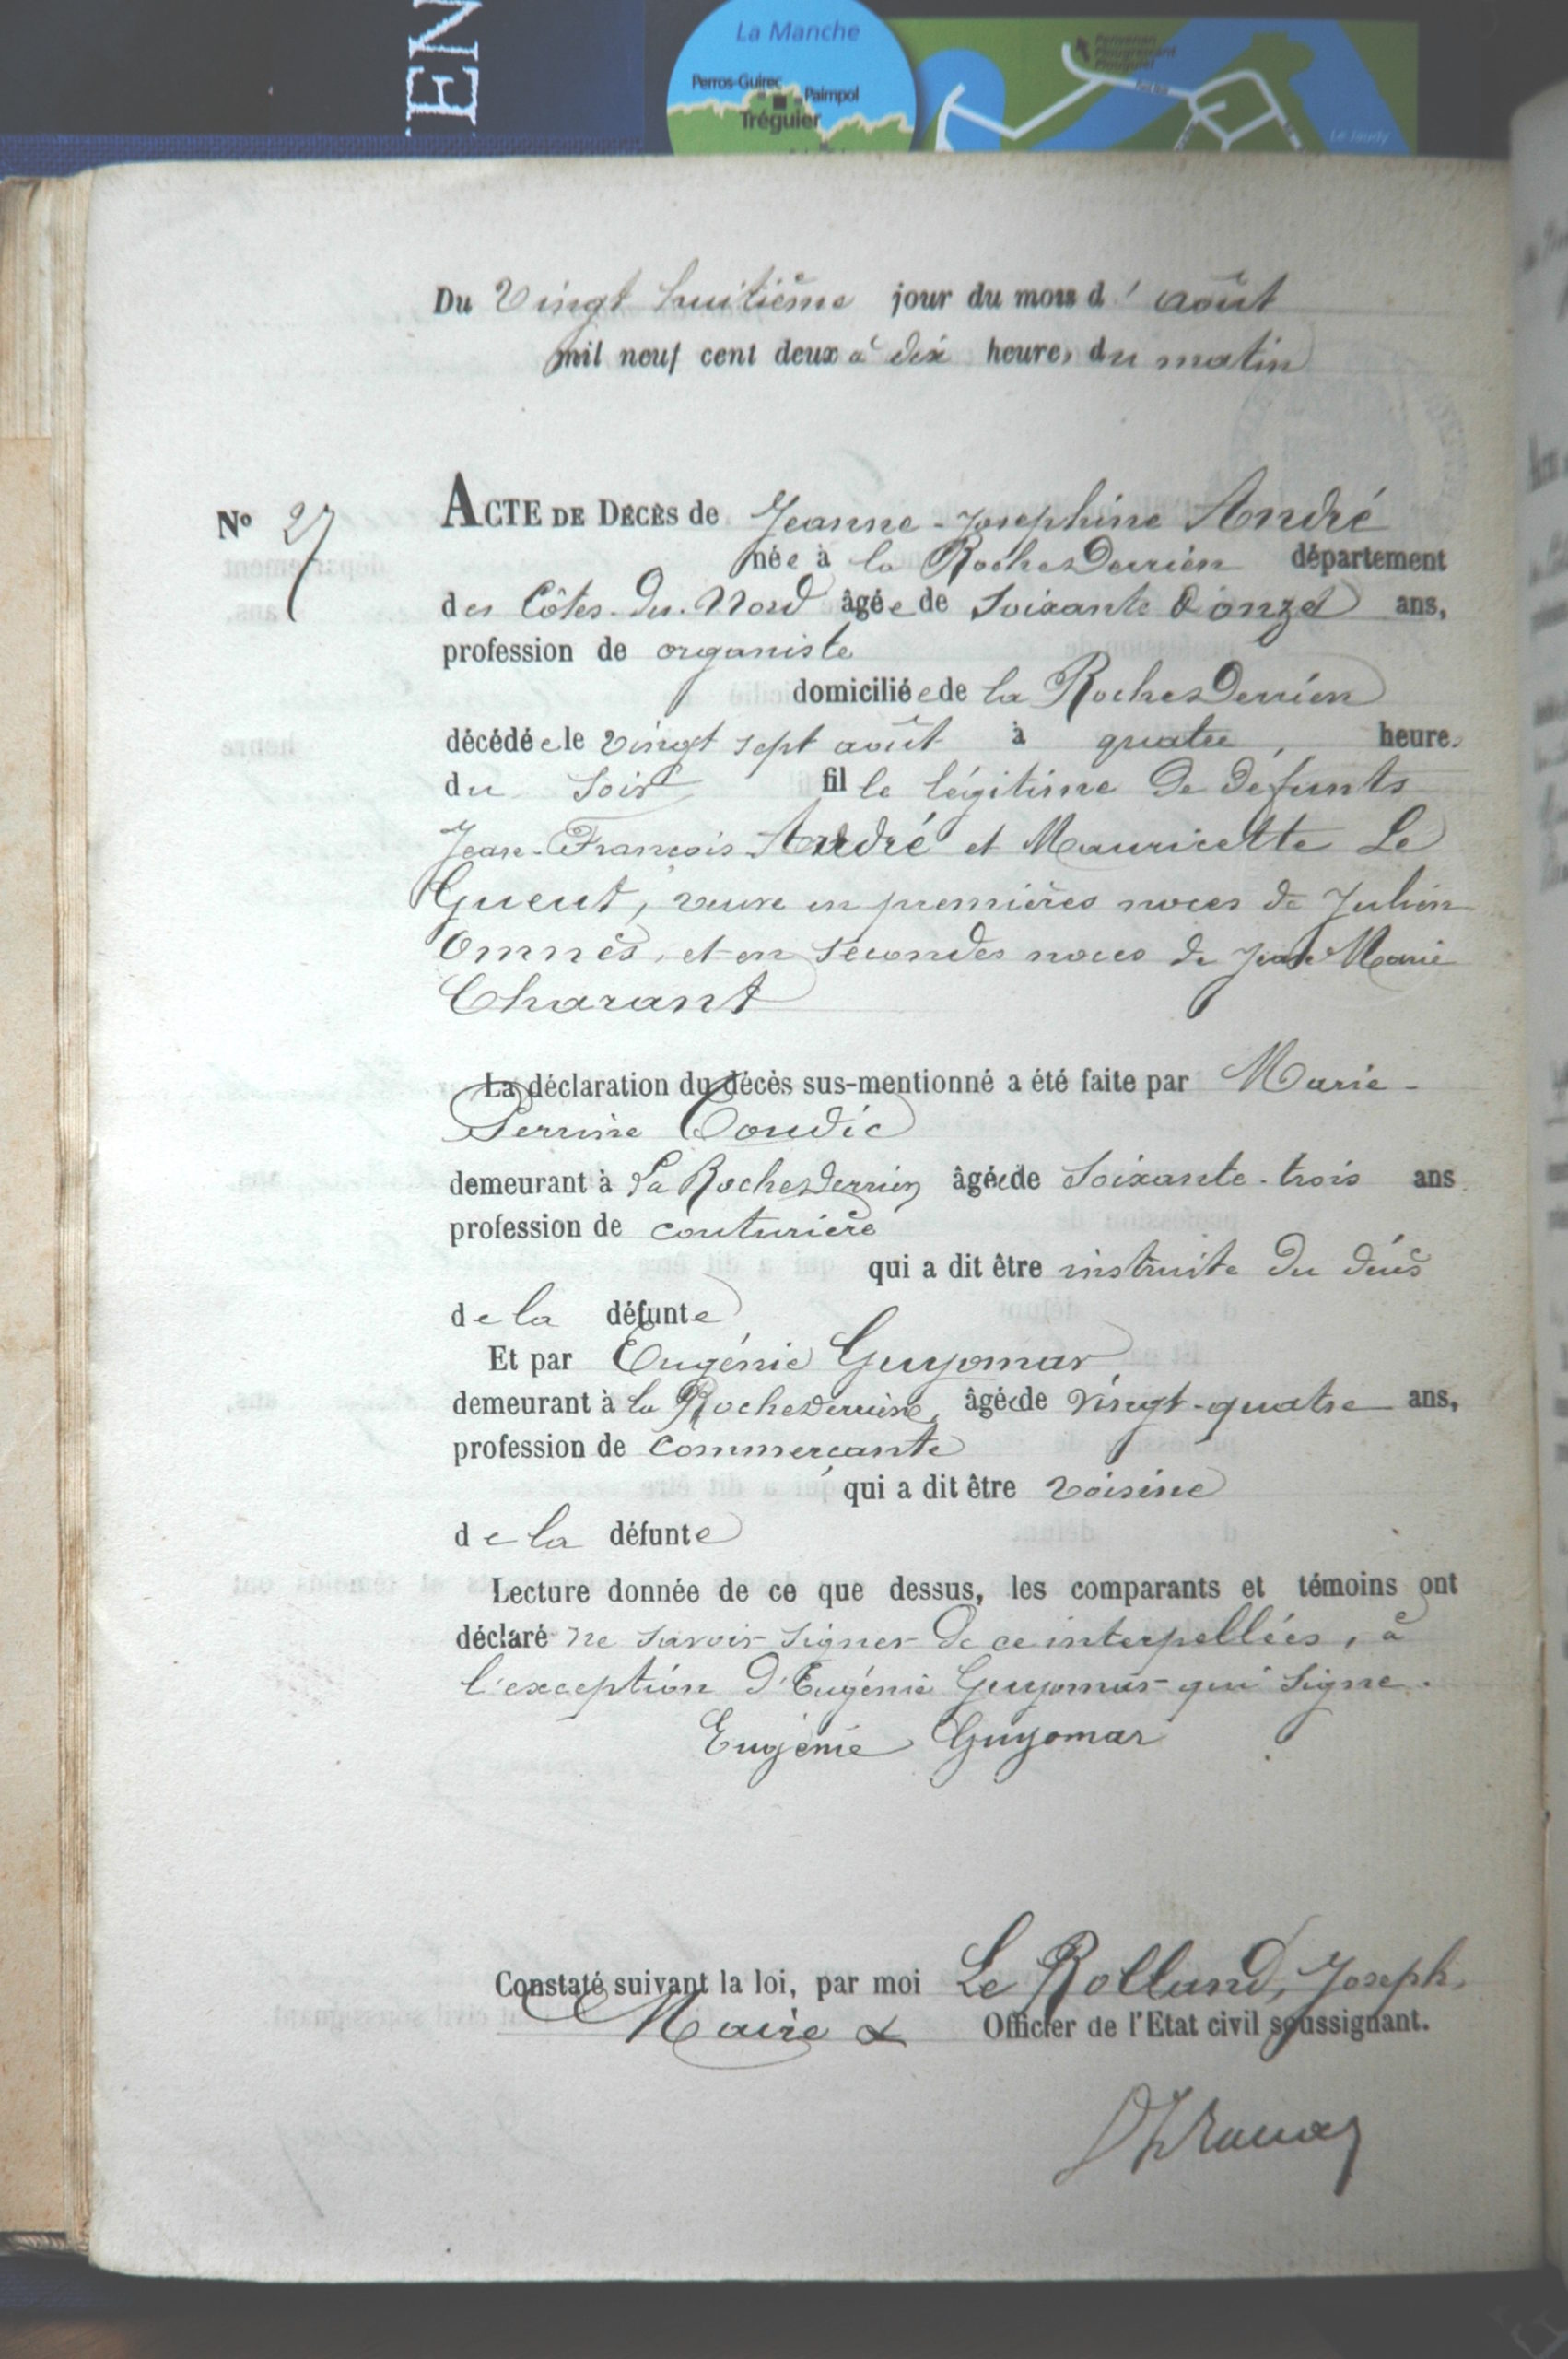 EN
La Manche
Perros-Guirec
Paimpol
Tréguier
Le Jaudy
Du Vingt huitième jour du mois d' août
mil neuf cent deux à dix heures du matin
N° 27
ACTE DE DÉCÈS de Jeanne-Josephine André
née à la Roche Derrien département
des Côtes-du-Nord âgée de soixante onze ans,
profession de organiste
domiciliée de la Roche Derrien
décédée le vingt sept août à quatre heures
du soir fille légitime de défunts
Jean-François André et Mauricette Le
Gueut, veuve en premières noces de Julien
Omnès, et en secondes noces de Jean Marie
Charant
La déclaration du décès sus-mentionné a été faite par Marie-
Perrine Coudic
demeurant à La Roche Derrien âgée de soixante-trois ans
profession de couturière
qui a dit être instruite du décès
de la défunte
Et par Eugénie Guyomar
demeurant à la Roche Derrien, âgée de vingt-quatre ans,
profession de commerçante
qui a dit être voisine
de la défunte
Lecture donnée de ce que dessus, les comparants et témoins ont
déclaré ne savoir signer de ce interpellées, à
l'exception d'Eugénie Guyomar qui signe.
Eugénie Guyomar
Constaté suivant la loi, par moi Le Rolland, Joseph,
Maire & Officier de l'Etat civil soussignant.